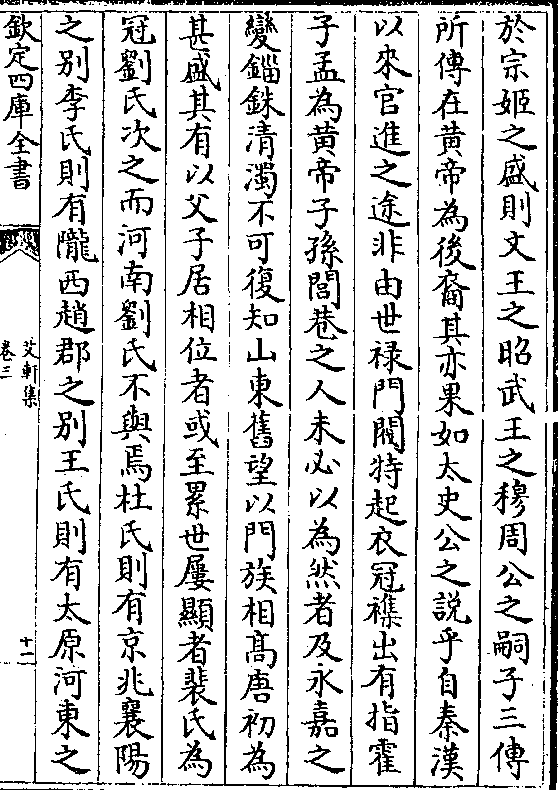 於宗姬之盛則文王之昭武王之穆周公之嗣子三傳
所傳在黄帝為後裔其亦果如太史公之說乎自秦漢
以來官進之途非由世禄門閥特起衣冠襍出有指霍
子孟為黄帝子孫閭巷之人未必以為然者及永嘉之
變錙銖清濁不可復知山東舊望以門族相髙唐初為
甚盛其有以父子居相位者或至累世屢顯者裴氏為
冠劉氏次之而河南劉氏不與焉杜氏則有京兆襄陽
之别李氏則有隴西趙郡之别王氏則有太原河東之
欽定四庫全書
艾軒集
卷三
十二